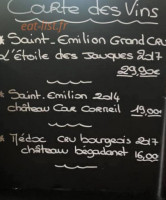 Carte des Vins
eat-list.fr
* Saint-Emilion Grand Cru
L'Étoile des Jauques 2017
29,90€
* Saint-Emilion 2014
château Car Corneil 19,00€
* Médoc cru bourgeois 2017
château bégadanet 16,00